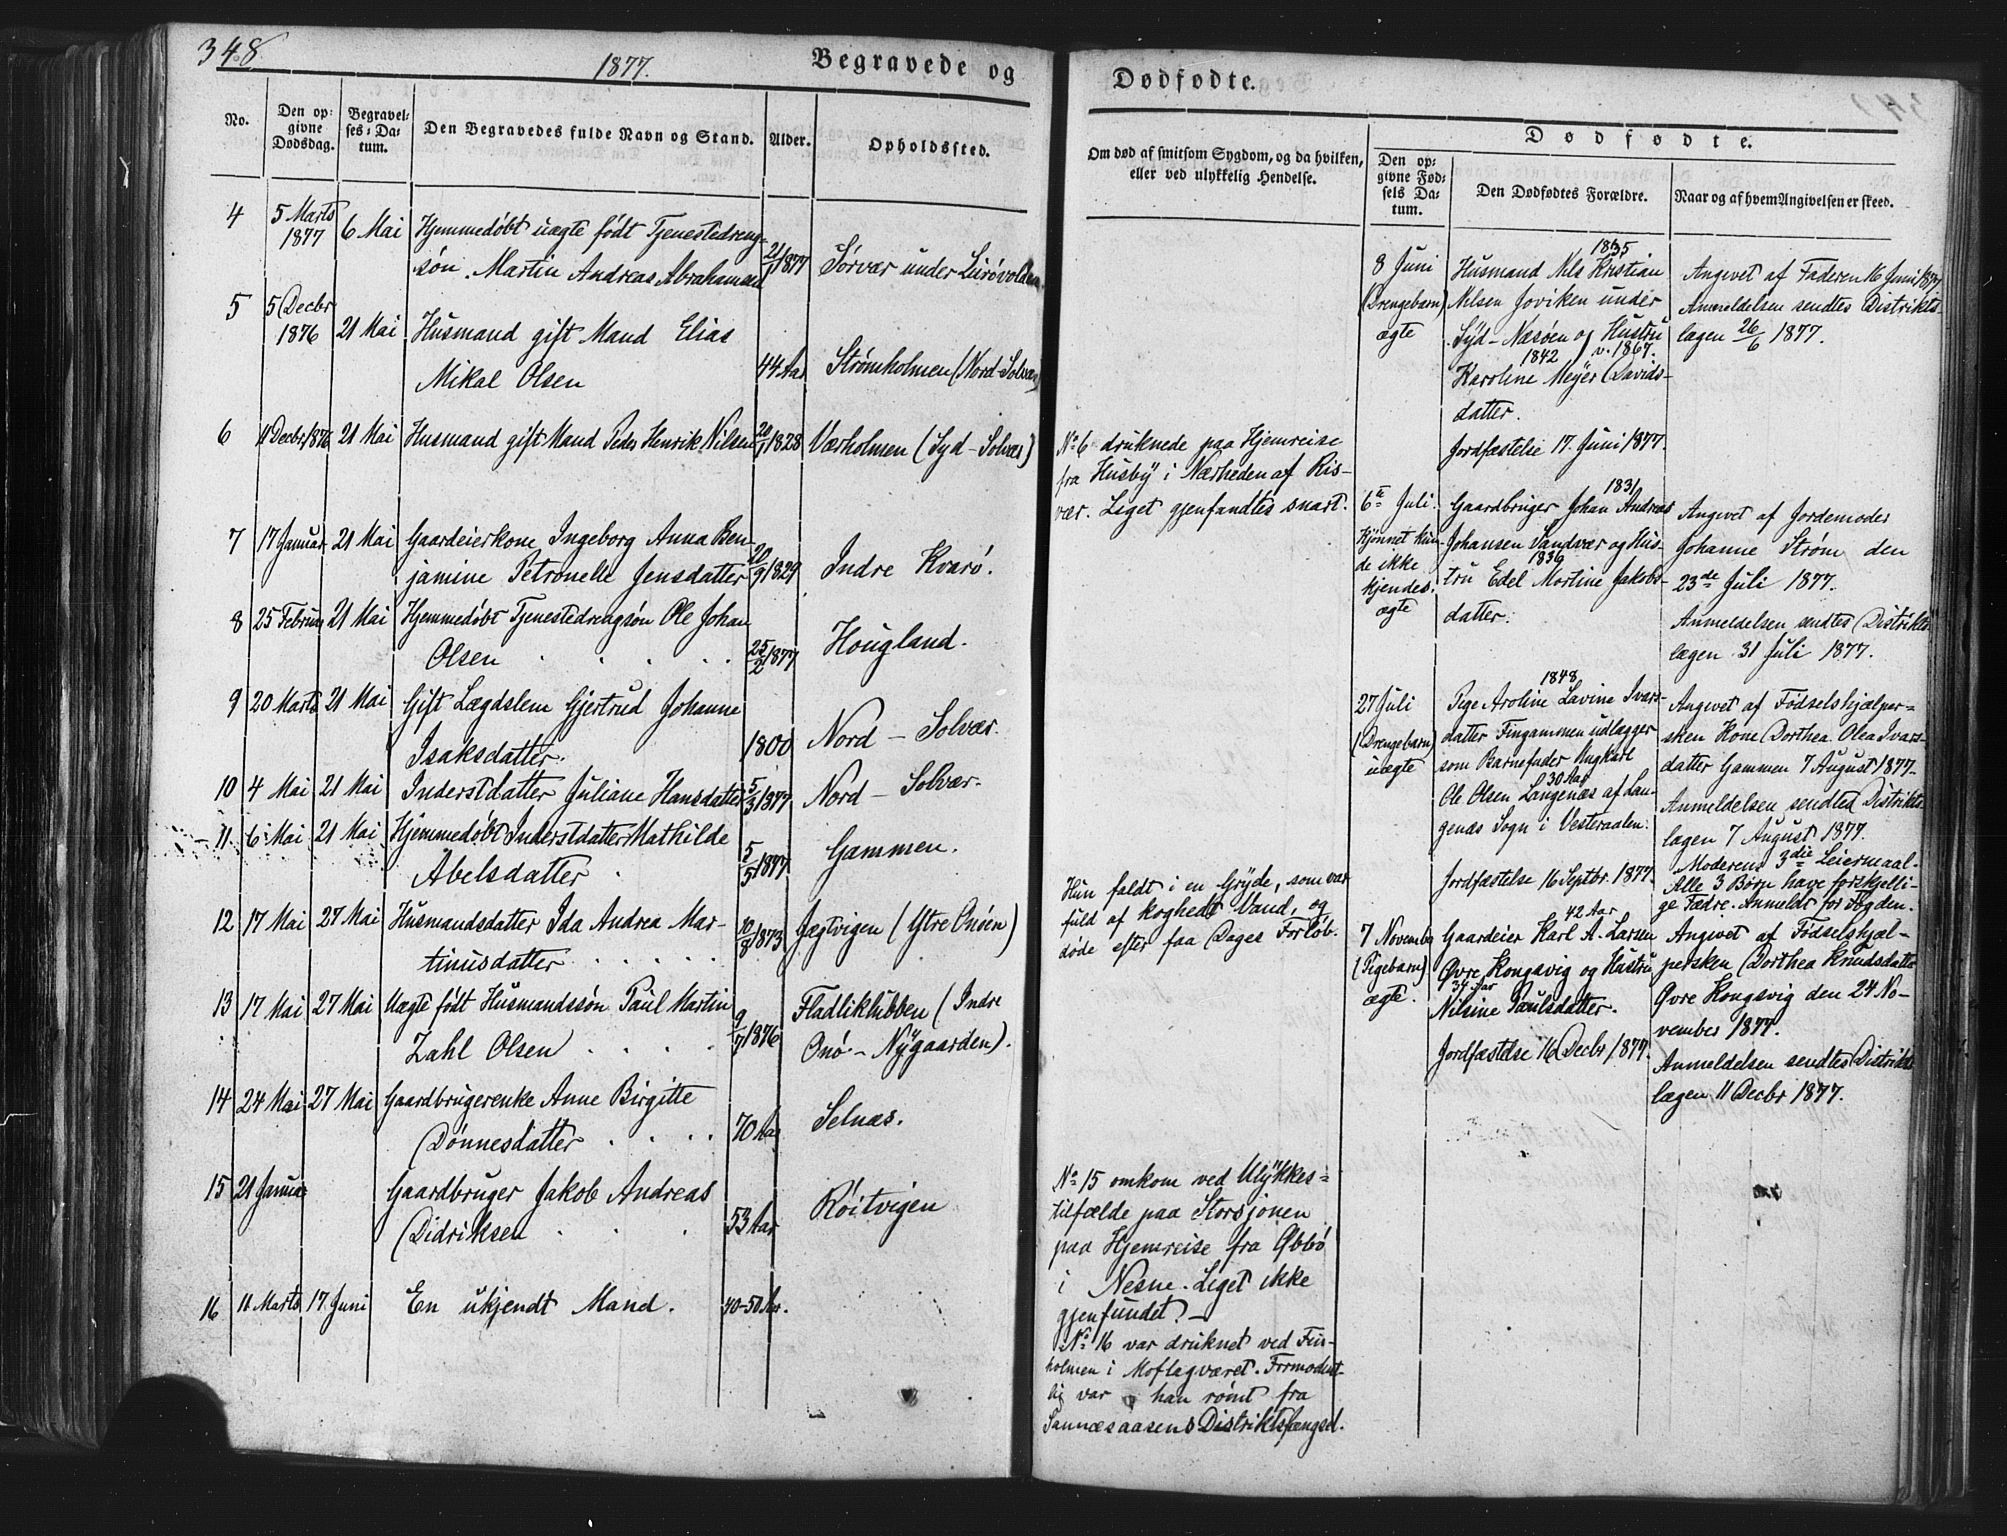 348.
1877.
Begravede og
No.
Den op-
givne
Dødsdag.
Begravel-
ses-Da-
tum.
Den Begravedes fulde Navn og Stand.
Alder.
Opholdssted.
4
5 Marts
1877
6 Mai
Hjemmedøbt uægte født Tjenestedreng-
søn Martin Andreas Abrahamsen
21/1 1877
Sørvær under Lurøvolden
5
5 Decbr
1876
21 Mai
Husmand gift Mand Elias
Mikal Olsen
44 Aar
Strømholmen (Nord-Solvær)
6
11 Decbr 1876
21 Mai
Husmand gift Mand Peder Henrik Nilsen
1828
Værholmen (Syd-Solvær)
7
17 Januar
21 Mai
Gaardeierkone Ingeborg Anna Ben-
jamine Petronelle Jensdatter
20/9 1829
Indre Kvarø.
8
25 Februar
21 Mai
Hjemmedøbt Tjenestedrengsøn Ole Johan
Olsen . . . . .
25/2 1877
Hougland.
9
20 Marts
21 Mai
Gift Lægdslem Gjertrud Johanne
Isaksdatter.
1800
Nord - Solvær.
10
4 Mai
21 Mai
Inderstdatter Juliane Hansdatter
5/3 1877
Nord - Solvær.
11
6 Mai
21 Mai
Hjemmedøbt Inderstdatter Mathilde
Abelsdatter .
5/5 1877
Gammen.
12
17 Mai
27 Mai
Husmandsdatter Ida Andrea Mar-
tinusdatter . . . . .
10/8 1873
Jægtvigen (Ytre Onøen)
13
17 Mai
27 Mai
Uægte født Husmandssøn Paul Martin
Zahl Olsen . . . .
9/7 1876
Fladliklubben (Indre
Onø - Nygaarden).
14
24 Mai
27 Mai
Gaardbrugerenke Anne Birgitte
Dønnesdatter . . . .
70 Aar
Selnæs.
15
21 Januar
Gaardbruger Jakob Andreas
Didriksen . . .
53 Aar
Røitvigen
16
11 Marts
17 Juni
En ukjendt Mand.
40-50 Aar.
Dødfødte.
Om død af smitsom Sygdom, og da hvilken,
eller ved ulykkelig Hendelse.
Dødfødte.
Den op-
givne Fød-
sels Da-
tum.
Den Dødfødtes Forældre.
Naar og af hvem Angivelsen er skeed.
No 6 druknede paa Hjemreise
fra Husby i Nærheden af Ris-
vær. Liget gjenfandtes snart.
Hun faldt i en Gryde, som var
fuld af koghedt Vand, og
døde efter faa Dages Forløb.
No 15 omkom ved Ulykkes-
tilfælde paa Storsjøen
paa Hjemreise fra Øbbø
i Nesne. Liget ikke
gjenfundet. -
No 16 var druknet ved Fin-
holmen i Moflagværet. Formodent-
lig var han rømt fra
Sannæsaasens Distriktsfængsel.
8 Juni
(Drengebarn)
ægte
1835
Husmand Nils Kristian
Nilsen Joviken under
Syd-Næsøen og Hustru
1842 v. 1867.
Karoline Meyer Davids-
datter.
Jordfæstelse 17 Juni 1877.
Angivet af Faderen 16 Juni 1877
Anmeldelsen sendtes Distrikts-
lægen 26/6 1877.
6te Juli.
Kjønnet kun-
de ikke
kjendes.
ægte
1831
Gaardbruger Johan Andreas
Johansen Sandvær og Hus-
1839
tru Edel Martine Jakobs-
datter.
Angivet af Jordemoder
Johanne Strøm den
23de Juli 1877.
Anmeldelsen sendtes Distrikts
lægen 31 Juli 1877.
27 Juli
(Drengebarn)
uægte
1848
Pige Aroline Lavine Ivars-
datter Fingammen udlægger
som Barnefader Ungkarl
30 Aar
Ole Olsen Langenæs af Lan-
genæs Sogn i Vesteraalen.
Jordfæstelse 16 Septbr. 1877.
Angivet af Fødselshjælper-
sken Kone Dorthea Olea Ivars-
datter Gammen 7 August 1877.
Anmeldelsen sendtes Distrikts-
lægen 7 August 1877.
Moderens 3die Leiermaal.
Alle 3 Børn have forskjelli-
ge Fædre. Anmeldt for Fogden.
7 Novembr
(Pigebarn)
ægte.
42 Aar
Gaardeier Karl A. Larsen
Øvre Kongsvig og Hustru
34 Aar
Nilsine Paulsdatter.
Jordfæstelse 16 Decbr 1877.
Angivet af Fødselshjæl-
persken Dorthea Knudsdatter
Øvre Kongsvig den 24 No-
vember 1877.
Anmeldelsen sendtes Distrikts
lægen 11 Decbr 1877.